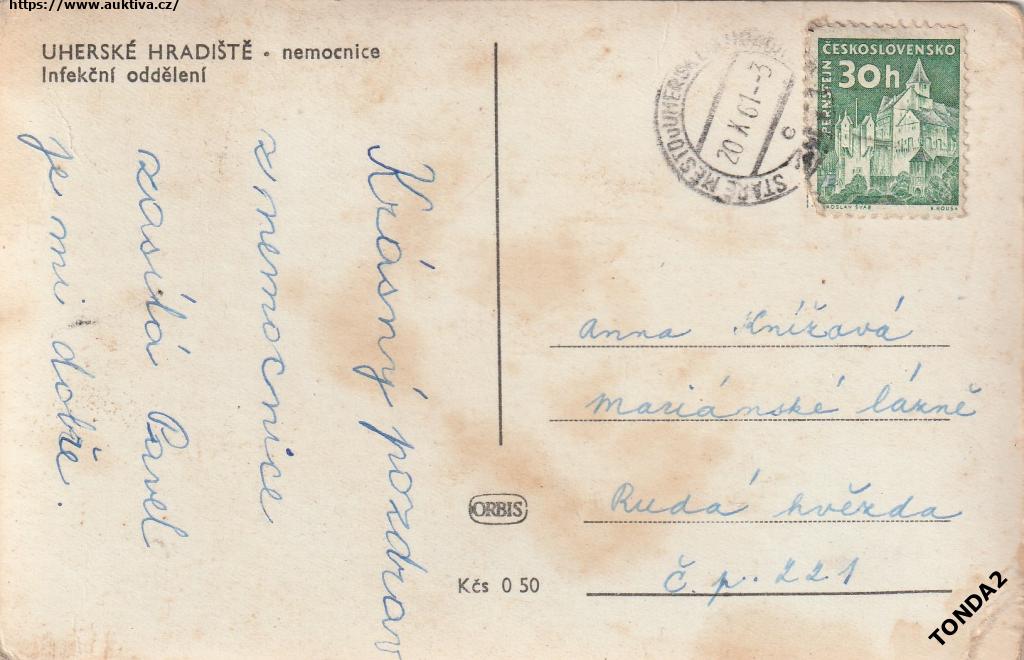 https://www.auktiva.cz/
UHERSKÉ HRADIŠTĚ - nemocnice
Infekční oddělení
Krásný pozdrav
z nemocnice
zasílá Pavel
je mi dobře.
STARÉ MĚSTO U UHERSKÉHO
20 X 61 - 3
c
ČESKOSLOVENSKO
30h
PERNŠTEJN
JAROSLAV ŠVÁB
Anna Knížová
Mariánské lázně
Rudá hvězda
Č. p. 221
ORBIS
Kčs 0 50
TONDA2